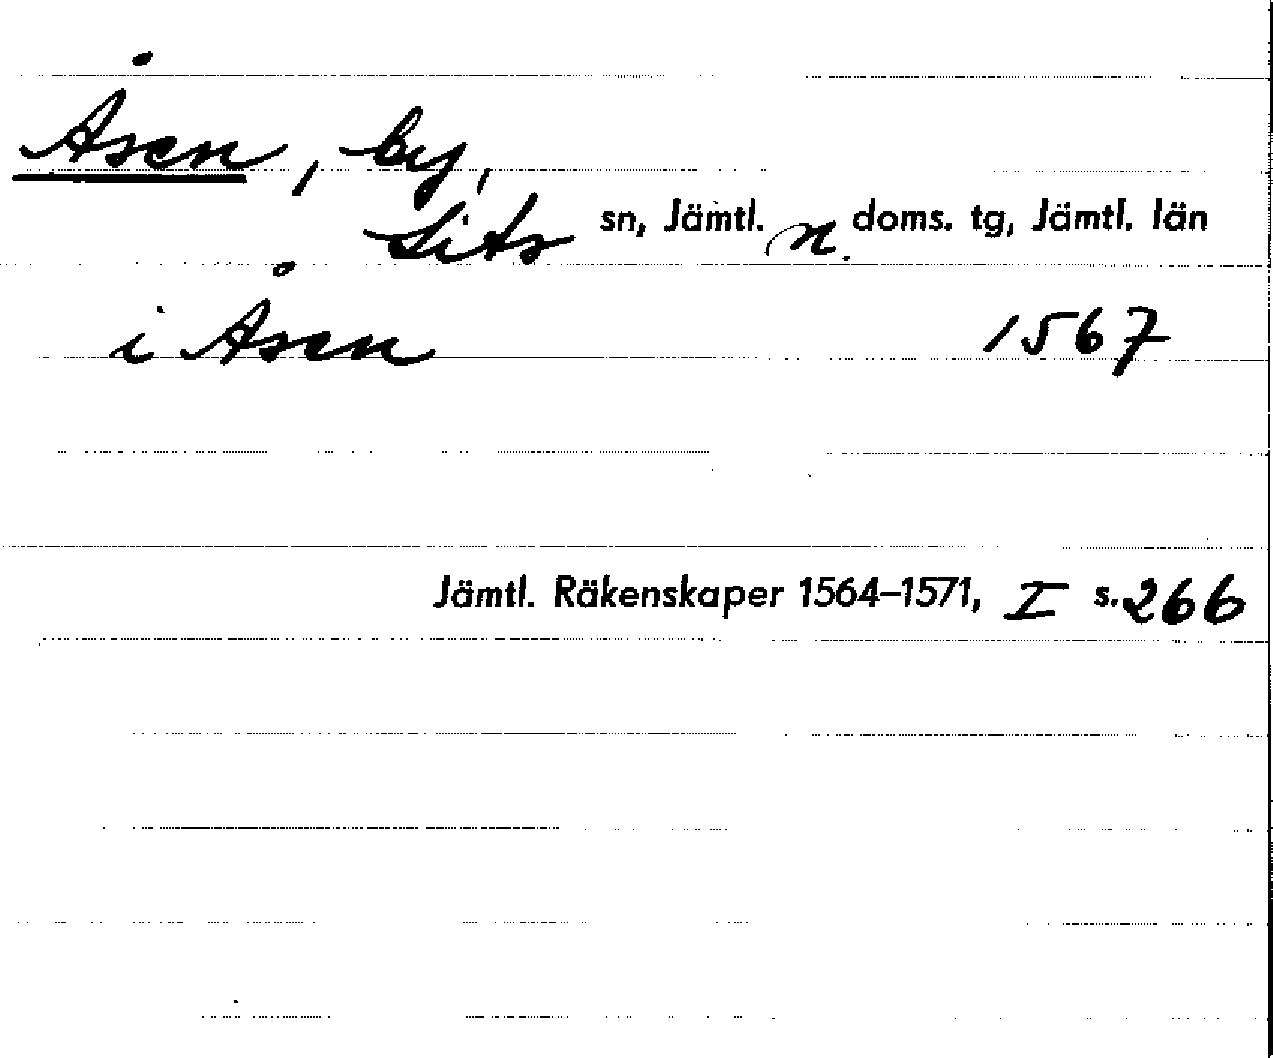 Åsen, by,
Lits sn, Jämtl. n. doms. tg, Jämtl. län
i Åsen 1567
Jämtl. Räkenskaper 1564–1571, I s. 266